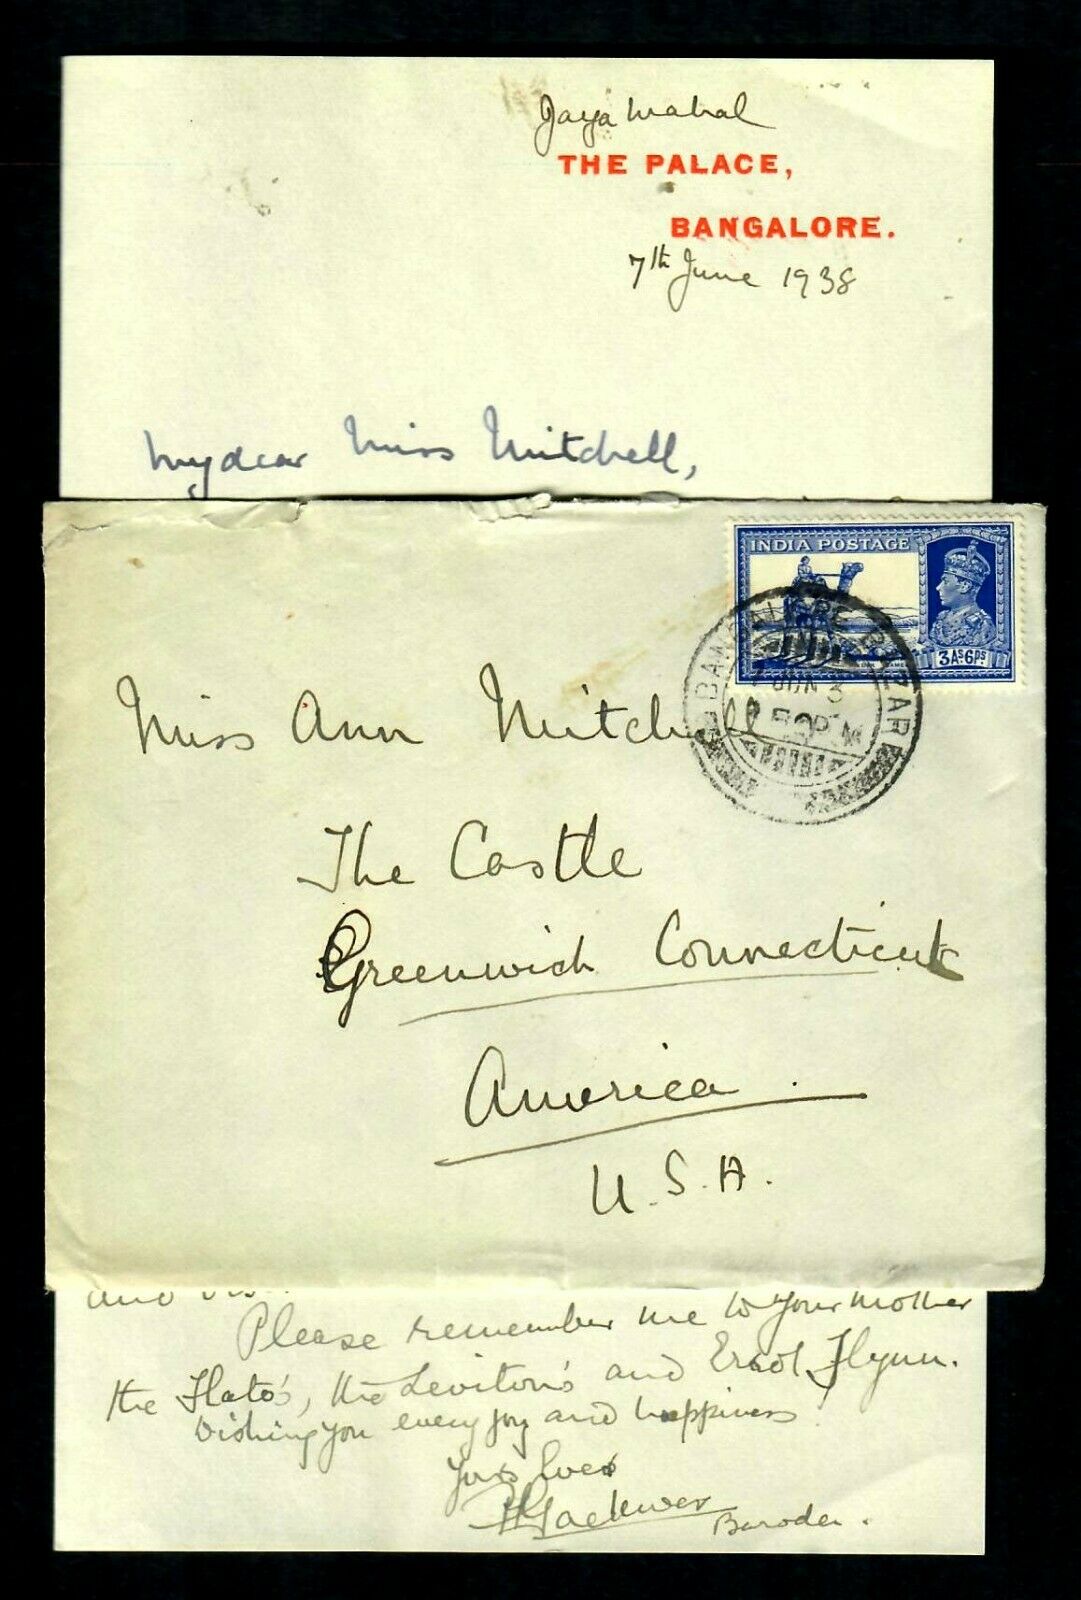 Jaya Mahal
THE PALACE,
BANGALORE.
7th June 1938
My dear Miss Mitchell,
INDIA POSTAGE
3As.6Ps
BANGALORE BAZAR
7 JUN 3
PM
Miss Ann Mitchell
The Castle
Greenwich Connecticut
America.
U.S.A.
and
Please remember me to your mother
the Flato's, the Leviton's and Errol Flynn.
Wishing you every joy and happiness
Yours
Gaekwar Baroda.